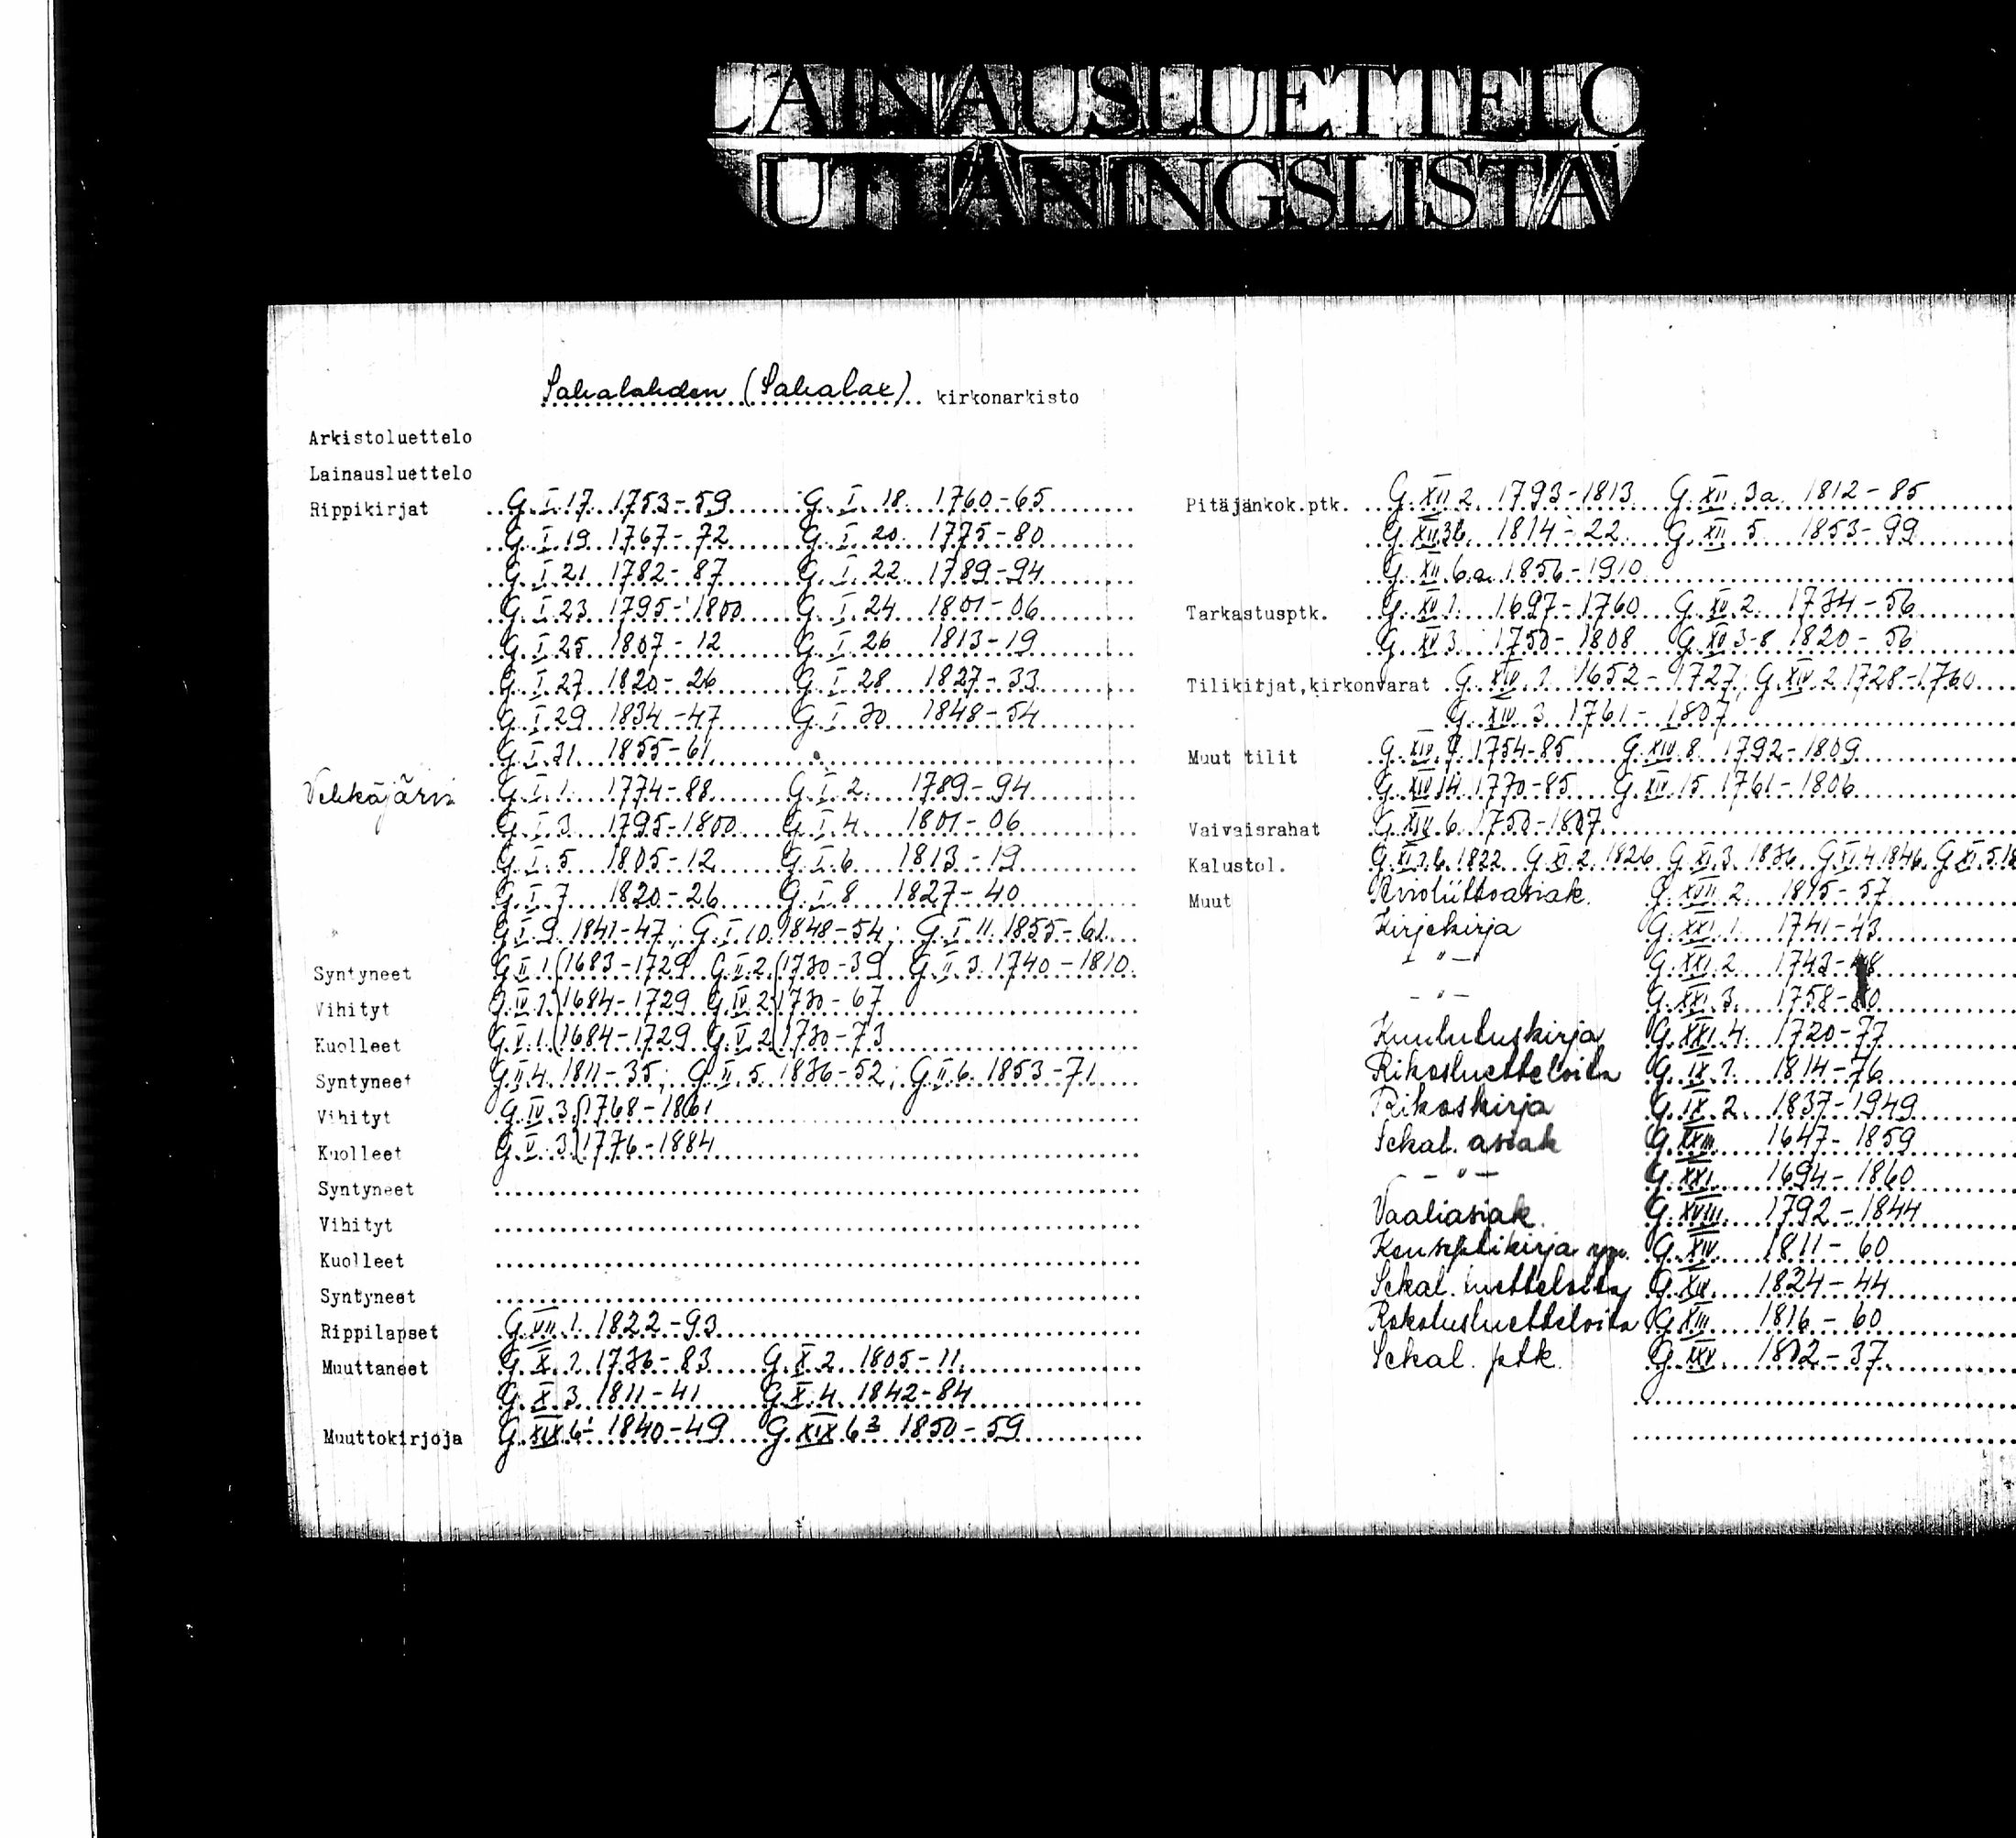 LAINAUSLUETTELO
UTLÅNINGSLISTA
Sahalahden (Sahalax) kirkonarkisto
Arkistoluettelo
Lainausluettelo
Rippikirjat G. I. 17 1753-59 G. I. 18 1760-65
G. I. 19 1767-72 G. I. 20 1775-80
G. I. 21 1782-87 G. I. 22 1789-94
G. I. 23 1795-1800 G. I. 24 1801-06
G. I. 25 1807-12 G. I. 26 1813-19
G. I. 27 1820-26 G. I. 28 1827-33
G. I. 29 1834-47 G. I. 30 1848-54
G. I. 31 1855-61
Vehkajärvi G. I. 1. 1774-88 G. I. 2. 1789-94
G. I. 3. 1795-1800 G. I. 4. 1801-06
G. I. 5 1805-12 G. I. 6 1813-19
G. I. 7 1820-26 G. I. 8 1827-40
G. I. 9. 1841-47; G. I. 10. 1848-54; G. I. 11. 1855-61
Syntyneet G. II. 1. (1683-1729 G. II. 2. (1730-39 G. II. 3. 1740-1810
Vihityt G. IV. 1. (1684-1729 G. IV. 2 (1730-67
Kuolleet G. V. 1. (1684-1729 G. V. 2 (1730-73
Syntyneet G. II. 4. 1811-35; G. II. 5. 1836-52; G. II. 6. 1853-71
Vihityt G. IV. 3. (1768-1861
Kuolleet G. V. 3. (1776-1884
Syntyneet
Vihityt
Kuolleet
Syntyneet
Rippilapset G. VII. 1. 1822-93
Muuttaneet G. X. 1. 1736-83 G. X. 2. 1805-11
G. X. 3 1811-41 G. X. 4. 1842-84
Muuttokirjoja G. XIX 6 1840-49 G. XIX 6 1850-59
Pitäjänkok.ptk. G. XII. 2. 1793-1813 G. XII. 3a. 1812-85
G. XII. 3b. 1814-22 G. XII. 5. 1853-99
G. XII. 6.a. 1856-1910
Tarkastusptk. G. XV. 1. 1697-1760 G. XV. 2. 1734-56
G. XV. 3. 1750-1808 G. XV. 3-8 1820-56
Tilikirjat,kirkonvarat G. XIV. 1. 1652-1727; G. XIV. 2. 1728-1760
G. XIV. 3. 1761-1807
Muut tilit G. XIV. 7. 1754-85 G. XIV. 8. 1792-1809
G. XIV. 14. 1770-85 G. XIV. 15 1761-1806
Vaivaisrahat G. XIV. 6. 1750-1807
Kalustol. G. XI. 1.b. 1822. G. XI. 2. 1826. G. XI. 3. 1836. G. XI. 4. 1846. G. XI. 5.
Muut Avioliittoasiak. G. XVII. 2. 1815-57
Kirjekirja G. XXI. 1. 1741-43
- " - G. XXI. 2 1743-
- " - G. XXI. 3. 1758-
Kuulutuskirja G. XXI. 4. 1720-77
Rikosluetteloita G. IX. 1. 1814-76
Rikoskirja G. IX. 2. 1837-1949
Sekal. asiak G. 1647-1859
- " - G. XXI. 1694-1860
Vaaliasiak. G. XVIII. 1792-1844
Konseptikirja ym. G. XIV 1811-60
Sekal. luetteloita G. XV. 1824-44
Rokotusluetteloita G. XIII 1816-60
Sekal. ptk. G. 1802-37